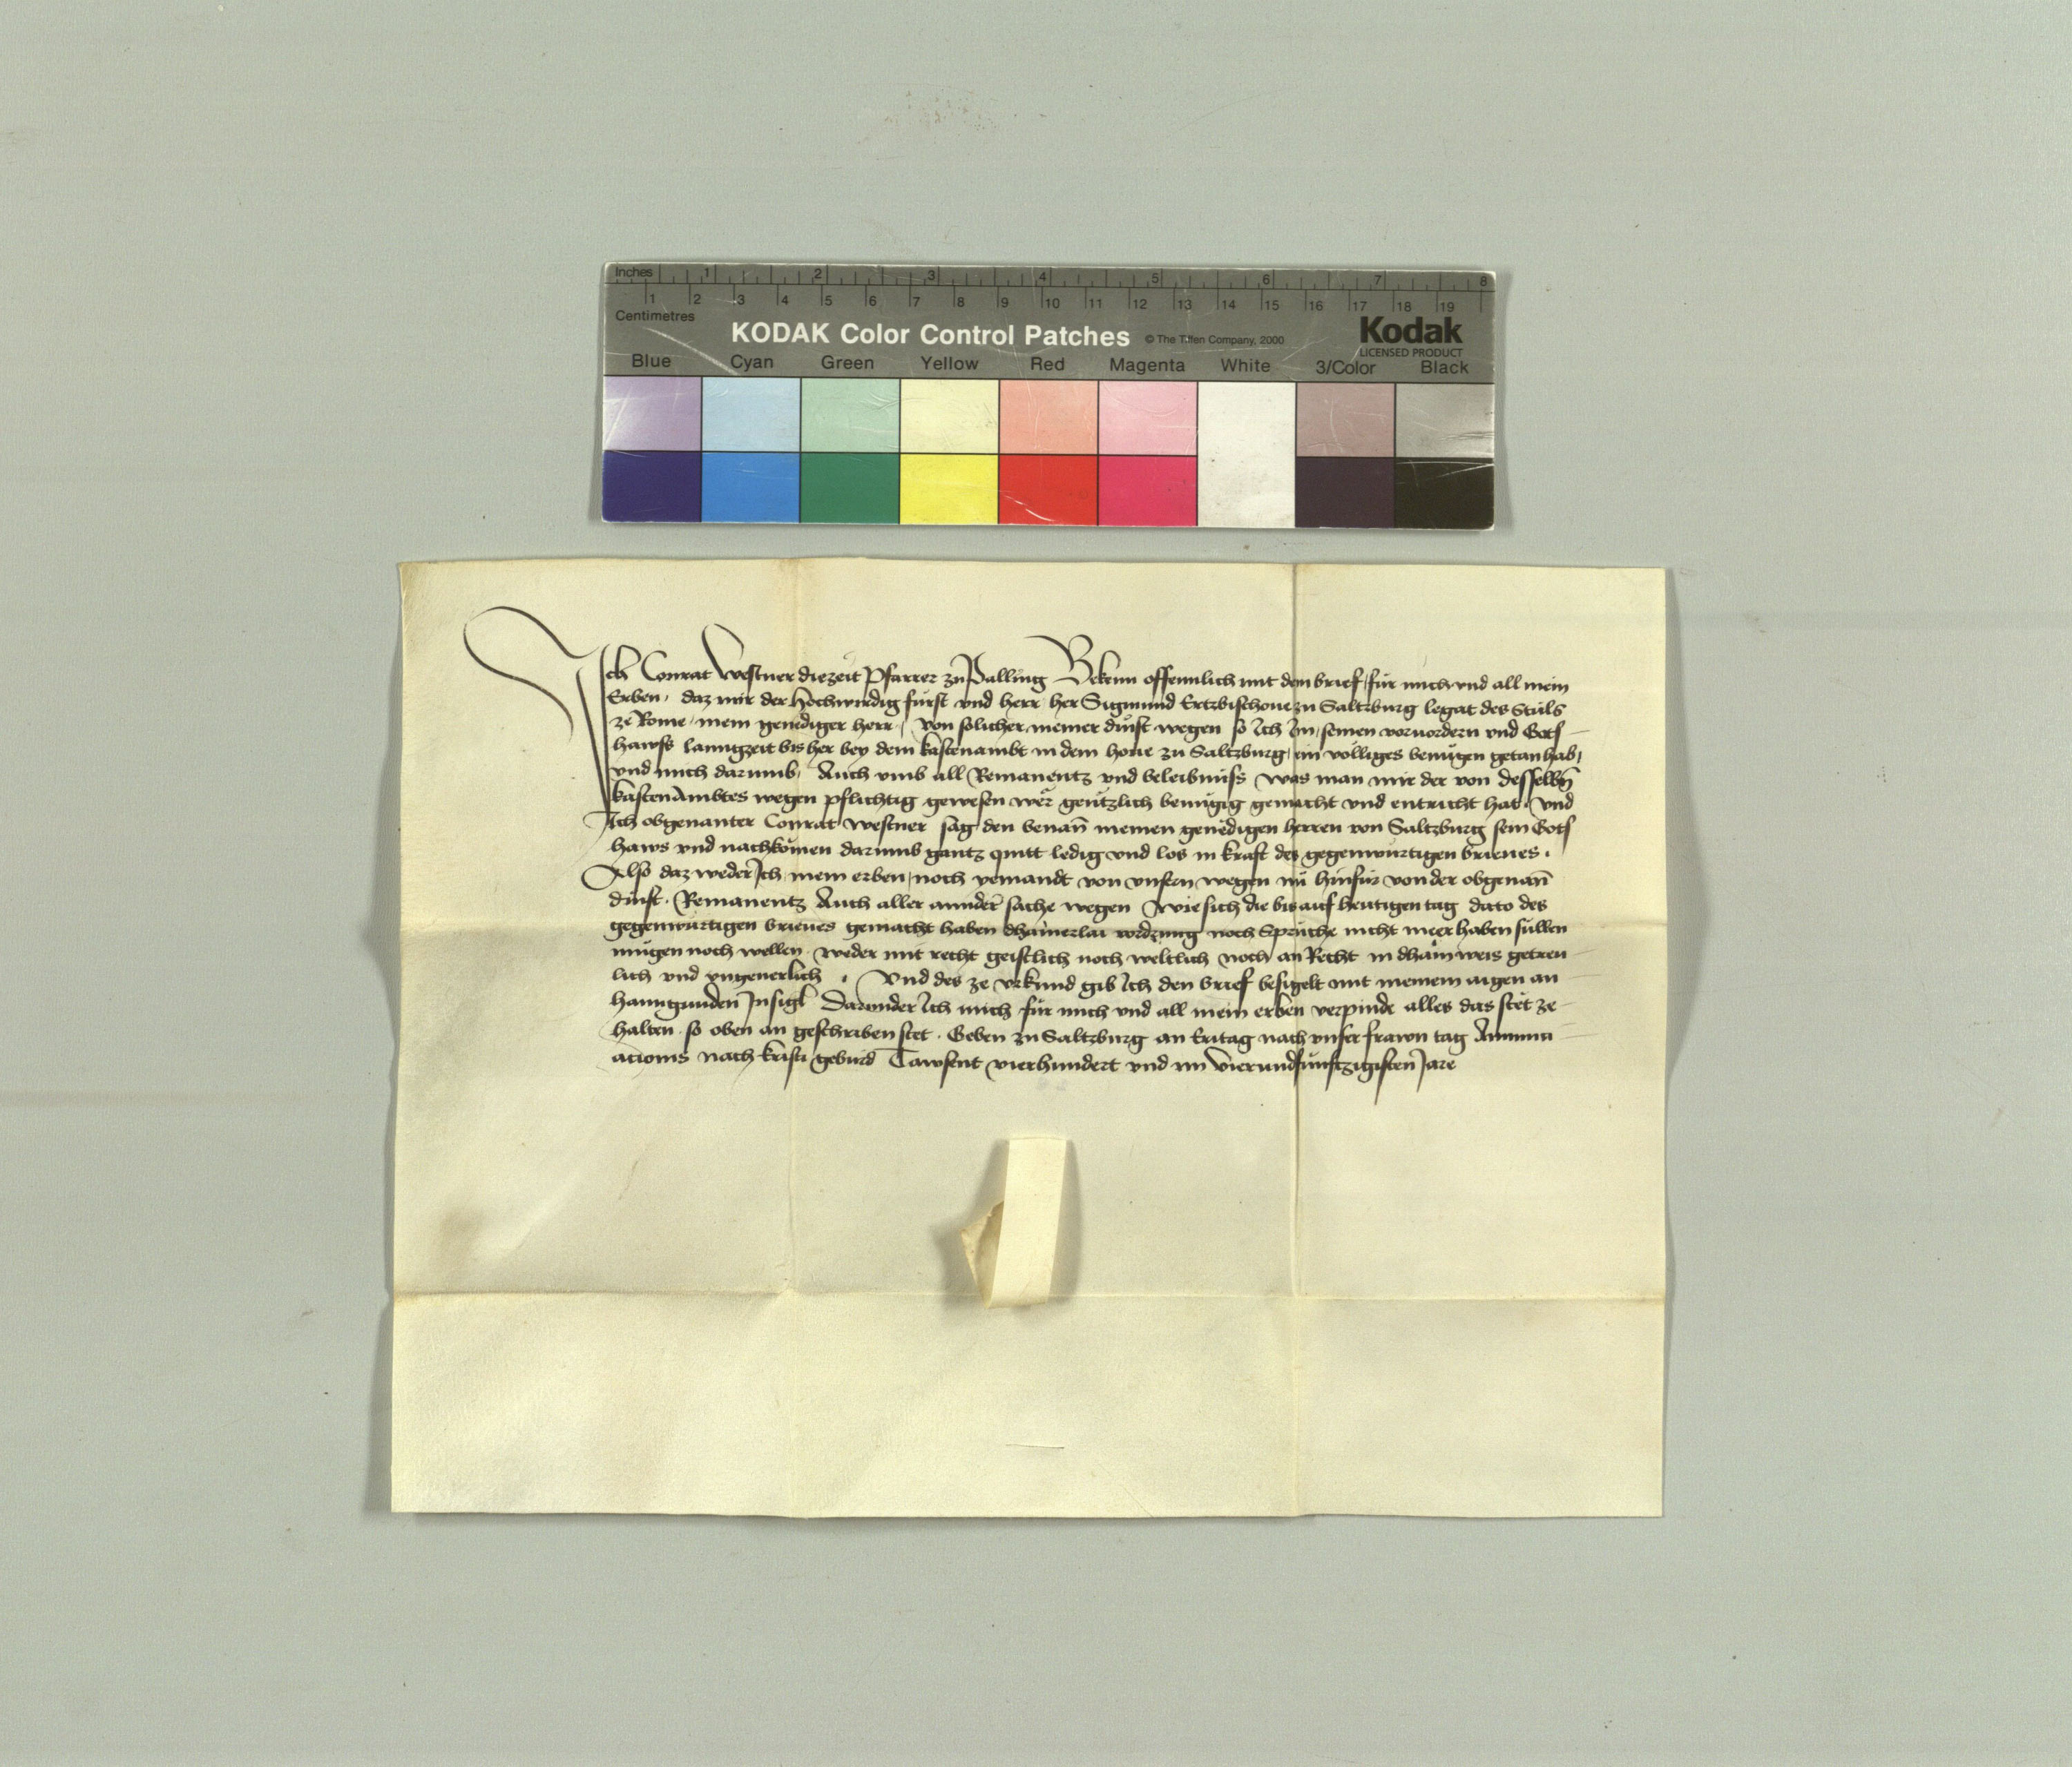 Inches 1 2 3 4 5 6 7 8
1 2 3 4 5 6 7 8 9 10 11 12 13 14 15 16 17 18 19
Centimetres
KODAK Color Control Patches © The Tiffen Company, 2000 Kodak
LICENSED PRODUCT
Blue Cyan Green Yellow Red Magenta White 3/Color Black
Ich Conrat Westner diezeit Pfarrer zu Palling Bekenn offennlich mit dem brief für mich vnd all mein
Erben, daz mir der hochwirdig fürst vnd herr her Sigmund Ertzbischoue zu Saltzburg legat des Stuls
ze Rome mein genediger herr, von solicher meiner dinst wegen so Ich Im, seinen voruordern vnd Gots
hawss lanngzeit bis her bey dem kastenambt in dem houe zu Saltzburg, ein völligs benügen getan hab,
vnd mich darumb, Auch vmb all Remanentz vnd beleibnüss was man mir der von desselbn̄
kastenambtes wegen pflichtig gewesen wer gentzlich benügig gemacht vnd entricht hat. Vnd
Ich obgenanter Conrat Westner sag den benan̄ meinen genedigen herren von Saltzburg sein Gots
haws vnd nachkomen darumb gantz quitt ledig vnd los in kraft des gegenwürtigen brieues.
Also daz weder Ich, mein erben, noch yemandt von vnsern wegen nu hinfür von der obgenan̄
dinst. Remanentz Auch aller annder sache wegen Wie sich die bis auf heutigen tag dato des
gegenwürtigen brieues gemacht haben dhainerlai vordrung noch Sprüche nicht meer haben süllen
mügen noch wellen. weder mit recht geistlich noch weltlich noch an Recht in dhain weis getreu
lich vnd vngeuerlich. Vnd des ze vrkund gib Ich den brief besigelt mit meinem aigen an
hanngunden Insigl Darunder Ich mich für mich vnd all mein erben verpinde alles das stet ze
halten so oben an geschriben stet. Geben zu Saltzburg an Eritag nach vnser frawn tag Annunci
acionis nach kristi geburd Tawsent vierhundert vnd im vierundfünftzigisten Jare